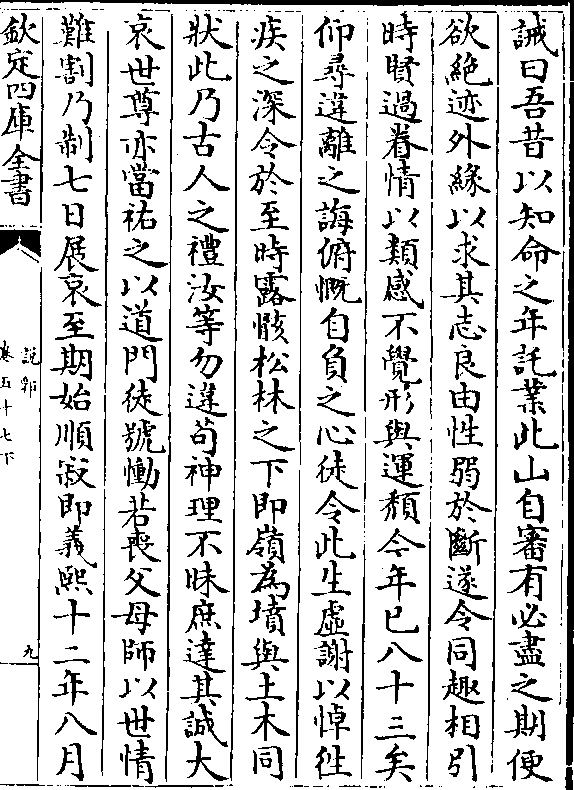 誡曰吾昔以知命之年託業此山自審有必盡之期便
欲絶迹外緣以求其志良由性弱於斷遂令同趣相引
時賢過眷情以類感不覺形與運頽今年已八十三矣
仰尋違離之誨俯慨自負之心徒令此生虛謝以悼徃
疾之深令於至時露骸松林之下即嶺為墳與土木同
狀此乃古人之禮汝等勿違苟神理不昧庶達其誠大
哀世尊亦當祐之以道門徒號慟若喪父母師以世情
難割乃制七日展哀至期始順寂即義熙十二年八月
欽定四庫全書
説郛
卷五十七下
九